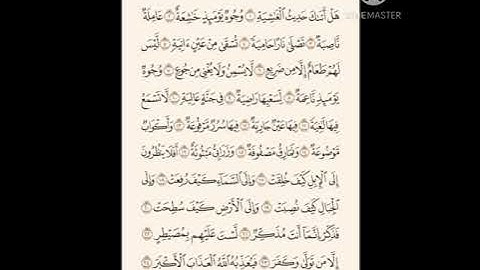 KINEMASTER
هَلْ أَتَىٰكَ حَدِيثُ ٱلْغَٰشِيَةِ ١ وُجُوهٌ يَوْمَئِذٍ خَٰشِعَةٌ ٢ عَامِلَةٌ
نَّاصِبَةٌ ٣ تَصْلَىٰ نَارًا حَامِيَةً ٤ تُسْقَىٰ مِنْ عَيْنٍ ءَانِيَةٍ ٥ لَّيْسَ
لَهُمْ طَعَامٌ إِلَّا مِن ضَرِيعٍ ٦ لَّا يُسْمِنُ وَلَا يُغْنِى مِن جُوعٍ ٧ وُجُوهٌ
يَوْمَئِذٍ نَّاعِمَةٌ ٨ لِّسَعْيِهَا رَاضِيَةٌ ٩ فِى جَنَّةٍ عَالِيَةٍ ١٠ لَّا تَسْمَعُ
فِيهَا لَٰغِيَةً ١١ فِيهَا عَيْنٌ جَارِيَةٌ ١٢ فِيهَا سُرُرٌ مَّرْفُوعَةٌ ١٣ وَأَكْوَابٌ
مَّوْضُوعَةٌ ١٤ وَنَمَارِقُ مَصْفُوفَةٌ ١٥ وَزَرَابِىُّ مَبْثُوثَةٌ ١٦ أَفَلَا يَنظُرُونَ
إِلَى ٱلْإِبِلِ كَيْفَ خُلِقَتْ ١٧ وَإِلَى ٱلسَّمَآءِ كَيْفَ رُفِعَتْ ١٨ وَإِلَى
ٱلْجِبَالِ كَيْفَ نُصِبَتْ ١٩ وَإِلَى ٱلْأَرْضِ كَيْفَ سُطِحَتْ ٢٠
فَذَكِّرْ إِنَّمَآ أَنتَ مُذَكِّرٌ ٢١ لَّسْتَ عَلَيْهِم بِمُصَيْطِرٍ ٢٢
إِلَّا مَن تَوَلَّىٰ وَكَفَرَ ٢٣ فَيُعَذِّبُهُ ٱللَّهُ ٱلْعَذَابَ ٱلْأَكْبَرَ ٢٤